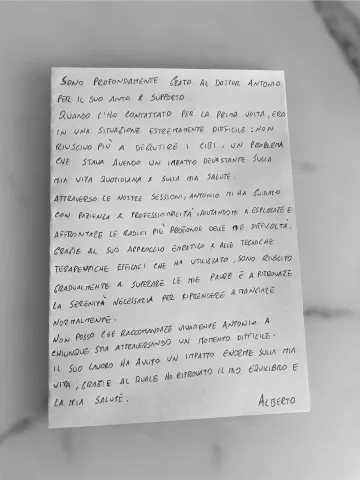 SONO PROFONDAMENTE GRATO AL DOTTOR ANTONIO
PER IL SUO AIUTO E SUPPORTO.
QUANDO L'HO CONTATTATO PER LA PRIMA VOLTA, ERO
IN UNA SITUAZIONE ESTREMAMENTE DIFFICILE: NON
RIUSCIVO PIÙ A DEGLUTIRE I CIBI, UN PROBLEMA
CHE STAVA AVENDO UN IMPATTO DEVASTANTE SULLA
MIA VITA QUOTIDIANA E SULLA MIA SALUTE.
ATTRAVERSO LE NOSTRE SESSIONI, ANTONIO MI HA GUIDATO
CON PAZIENZA E PROFESSIONALITÀ, AIUTANDOMI A ESPLORARE E
AFFRONTARE LE RADICI PIÙ PROFONDE DELLE MIE DIFFICOLTÀ.
GRAZIE AL SUO APPROCCIO EMPATICO E ALLE TECNICHE
TERAPEUTICHE EFFICACI CHE HA UTILIZZATO, SONO RIUSCITO
GRADUALMENTE A SUPERARE LE MIE PAURE E A RITROVARE
LA SERENITÀ NECESSARIA PER RIPRENDERE A MANGIARE
NORMALMENTE.
NON POSSO CHE RACCOMANDARE VIVAMENTE ANTONIO A
CHIUNQUE STIA ATTRAVERSANDO UN MOMENTO DIFFICILE.
IL SUO LAVORO HA AVUTO UN IMPATTO ENORME SULLA MIA
VITA, GRAZIE AL QUALE HO RITROVATO IL MIO EQUILIBRIO E
LA MIA SALUTE.
ALBERTO